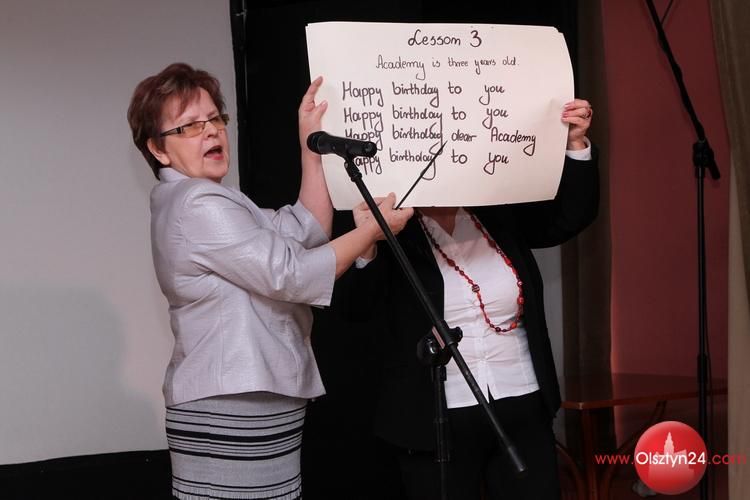 Lesson 3
Academy is three years old.
Happy birthday to you
Happy birthday to you
Happy birthday dear Academy
Happy birthday to you
www.Olsztyn24.com